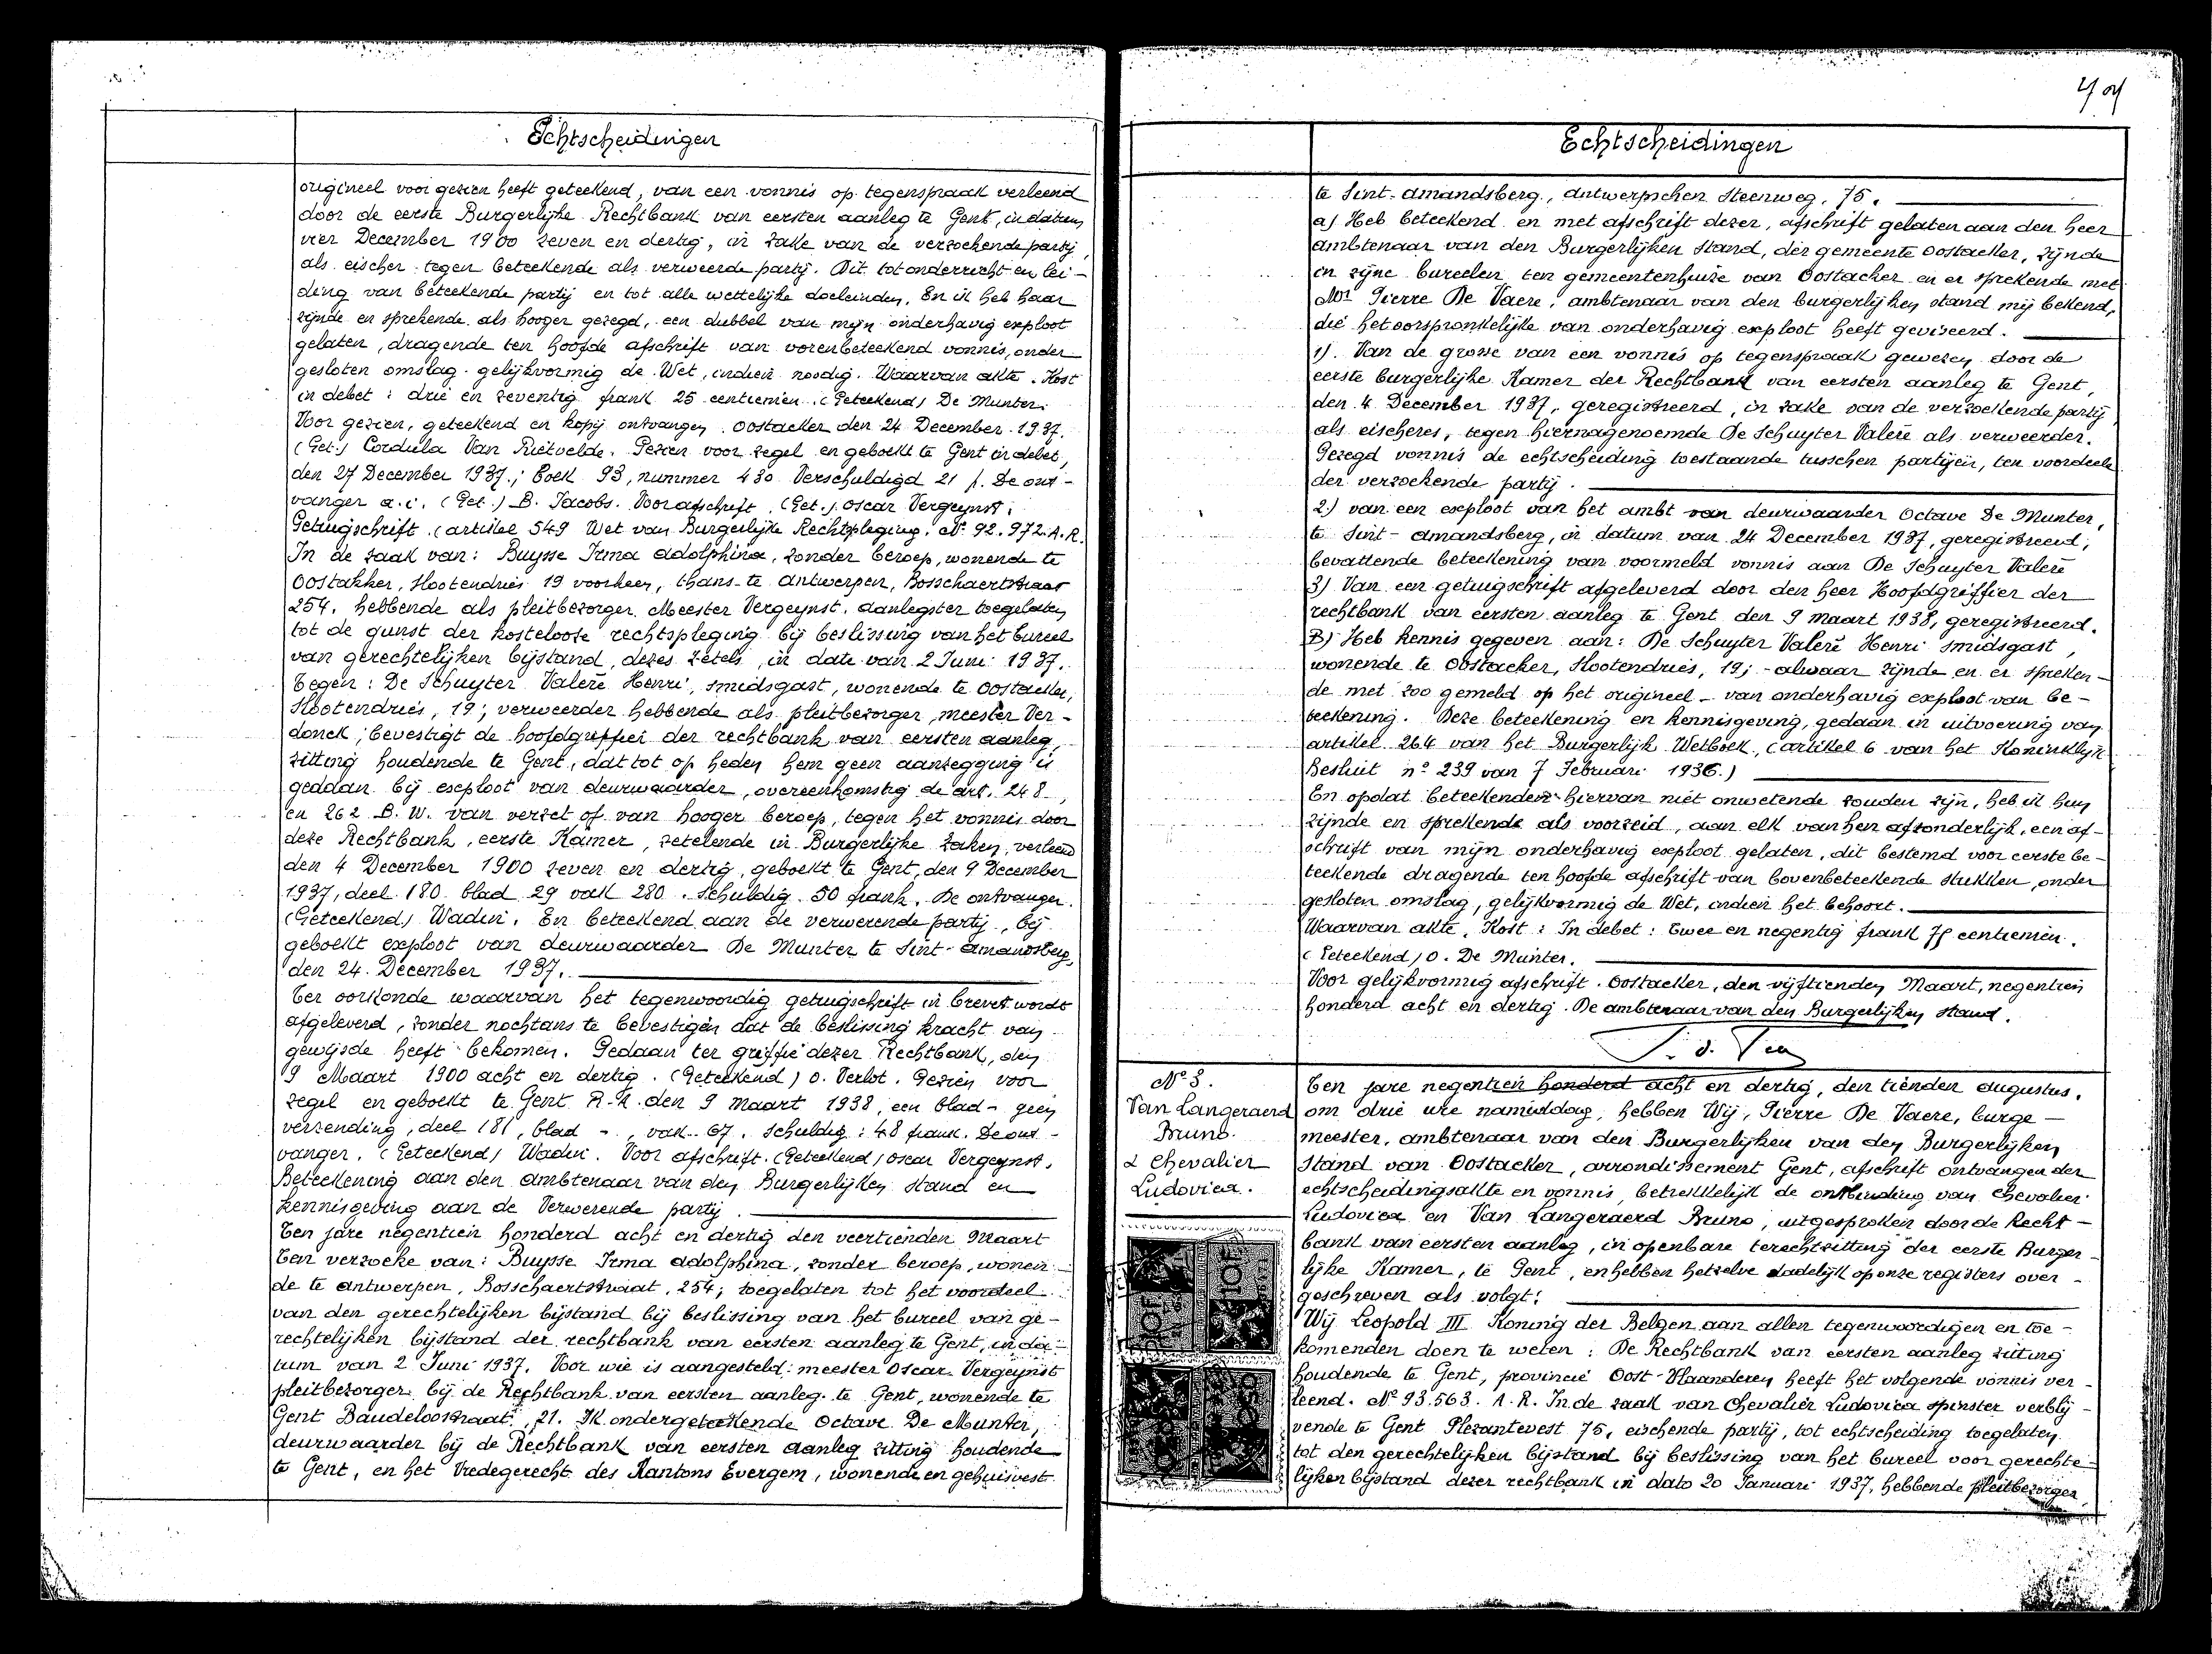 Echtscheidingen
origineel voor gezien heeft geteekend, van een vonnis op tegenspraak verleend
door de eerste Burgerlijke Rechtbank van eersten aanleg te Gent, in datum
vier December 1900 zeven en dertig, in zake van de verzoekende partij,
als eischer tegen beteekende als verweerde partij. Dit tot onderricht en lei-
ding van beteekende partij en tot alle wettelijke doeleinden. En ik heb haar
zijnde en sprekende als hooger gezegd, een dubbel van mijn onderhavig exploot
gelaten, dragende ten hoofde afschrift van vorenbeteekend vonnis, onder
gesloten omslag gelijkvormig de Wet, indien noodig. Waarvan akte. Kost
in debet: drie en zeventig frank 25 centiemen. (Geteekend) De Munter.
Voor gezien, geteekend en kopij ontvangen. Oostakker den 24 December 1937.
(Get.) Cordula Van Rietvelde. Gezien voor zegel en geboekt te Gent in debet,
den 27 December 1937.; boek 93, nummer 430 Verschuldigd 21 f. De ont-
vanger a.i. (Get.) B. Jacobs. Voor afschrift. (Get.) Oscar Vergeynst.
Getuigschrift. (artikel 549 Wet van Burgerlijke Rechtspleging. Nr. 92.972.A.R.
In de zaak van: Buysse Irma Adolphina, zonder beroep, wonende te
Oostakker, Slootendries 19 voorheen, thans te Antwerpen, Bosschaertstraat
254, hebbende als pleitbezorger Meester Vergeynst, aanlegster toegelaten
tot de gunst der kosteloose rechtspleging bij beslissing van het bureel
van gerechtelijken bijstand, dezes zetels, in date van 2 Juni 1937.
Tegen: De Schuyter Valerè Henri, smidsgast, wonende te Oostakker,
Slootendries, 19; verweerder hebbende als pleitbezorger, meester Ver-
donck; bevestigt de hoofdgriffier der rechtbank van eersten aanleg,
zitting houdende te Gent, dat tot op heden hem geen aanzegging is
gedaan bij exploot van deurwaarder, overeenkomstig de art. 248,
en 262 B. W. van verzet of van hooger beroep, tegen het vonnis door
deze Rechtbank, eerste Kamer, zetelende in Burgerlijke Zaken, verleend
den 4 December 1900 zeven en dertig, geboekt te Gent, den 9 December
1937, deel 180 blad 29 vak 280. Schuldig 50 frank. De ontvanger.
(Geteekend) Wadin. En beteekend aan de verwerende partij, bij
geboekt exploot van deurwaarder De Munter te Sint-Amandsberg,
den 24 December 1937.
Ter oorkonde waarvan het tegenwoordig getuigschrift in brevet wordt
afgeleverd, zonder nochtans te bevestigen dat de beslissing kracht van
gewijsde heeft bekomen. Gedaan ter griffie dezer Rechtbank, den
9 Maart 1900 acht en dertig. (Geteekend) O. Verlot. Gezien voor
zegel en geboekt te Gent R.A. den 9 maart 1938, een blad- geen
verzending, deel 181, blad -, vak 67. Schuldig: 48 frank. De ont-
vanger. (Geteekend) Wadin. Voor afschrift. (Geteekend) Oscar Vergeynst.
Beteekening aan den Ambtenaar van den Burgerlijken Stand en
kennisgeving aan de Verwerende partij.
Ten jare negentien honderd acht en dertig den veertienden Maart
Ten verzoeke van: Buysse Irma Adolphina, zonder beroep, wonen-
de te Antwerpen, Bosschaertstraat, 254; toegelaten tot het voordeel
van den gerechtelijken bijstand bij beslissing van het bureel van ge-
rechtelijken bijstand der rechtbank van eersten aanleg te Gent, in da-
tum van 2 Juni 1937. Voor wie is aangesteld: meester Oscar Vergeynst
pleitbezorger bij de Rechtbank van eersten aanleg te Gent, wonende te
Gent Baudeloostraat, 21. Ik ondergeteekende Octave De Munter,
deurwaarder bij de Rechtbank van eersten aanleg zitting houdende
te Gent, en het Vredegerecht des Kantons Evergem, wonende en gehuisvest
Echtscheidingen
te Sint-Amandsberg, Antwerpschen Steenweg, 75.
a) Heb beteekend en met afschrift dezer, afschrift gelaten aan den heer
Ambtenaar van den Burgerlijken Stand, der gemeente Oostacker, zijnde
in zijne bureelen ten gemeentenhuize van Oostacker en er sprekende met
Mr Pierre De Vaere, ambtenaar van den burgerlijken stand mij bekend,
die het oorspronkelijke van onderhavig exploot heeft geviseerd.
1). Van de grosse van een vonnis op tegenspraak gewezen door de
eerste burgerlijke Kamer der Rechtbank van eersten aanleg te Gent,
den 4 December 1937, geregistreerd, in zake van de verzoekende partij
als eischeres, tegen hiernagenoemde De Schuyter Valerè als verweerder.
Gezegd vonnis de echtscheiding toestaande tusschen partijen, ten voordeele
der verzoekende partij.
2) van een exploot van het ambt van deurwaarder Octave De Munter,
te Sint-Amandsberg, in datum van 24 December 1937, geregistreerd,
bevattende beteekening van voormeld vonnis aan De Schuyter Valerè
3) Van een getuigschrift afgeleverd door den heer Hoofdgriffier der
rechtbank van eersten aanleg te Gent den 9 maart 1938, geregistreerd.
B) Heb kennis gegeven aan: De Schuyter Valerè Henri smidsgast,
wonende te Oostacker, Slootendries, 19; - alwaar zijnde en er spreken-
de met zoo gemeld op het origineel - van onderhavig exploot van be-
teekening. Deze beteekening en kennisgeving, gedaan in uitvoering van
artikel 264 van het Burgerlijk Wetboek, (artikel 6 van het Koninklijk
Besluit n° 239 van 7 Februari 1936.)
En opdat beteekenden hiervan niet onwetende zouden zijn, heb ik hun
zijnde en sprekende als voorzeid, aan elk van hen afzonderlijk, een af-
schrift van mijn onderhavig exploot gelaten, dit bestemd voor eerste be-
teekende dragende ten hoofde afschrift van bovenbeteekende stukken, onder
gesloten omslag, gelijkvormig de Wet, indien het behoort.
Waarvan akte. Kost: In debet: twee en negentig frank 75 centiemen.
(Geteekend) O. De Munter.
Voor gelijkvormig afschrift. Oostacker, den vijftienden Maart, negentien
honderd acht en dertig. De ambtenaar van den Burgerlijken Stand.
N° 3.
Van Langeraerd
Bruno.
& Chevalier
Ludovica.
10F
Ten jare negentien honderd acht en dertig, den tienden augustus,
om drie ure namiddag, hebben Wij, Pierre De Vaere, burge-
meester, ambtenaar van den Burgerlijken van den Burgerlijken
Stand van Oostacker, arrondissement Gent, afschrift ontvangen der
echtscheidingsakte en vonnis, betrekkelijk de ontbinding van Chevalier
Ludovica en Van Langeraerd Bruno, uitgesproken door de Recht-
bank van eersten aanleg, in openbare terechtzitting der eerste Burger-
lijke Kamer, te Gent, en hebben hetzelve dadelijk op onze registers over-
geschreven als volgt:
Wij Leopold III Koning der Belgen aan allen tegenwoordigen en toe-
komenden doen te weten: De Rechtbank van eersten aanleg zitting
houdende te Gent, provincie Oost-Vlaanderen heeft het volgende vonnis ver-
leend. N° 93.563. A.R. In de zaak van Chevalier Ludovica spinster verblij-
vende te Gent Plezantevest 75, eischende partij, tot echtscheiding toegelaten
tot den gerechtelijken bijstand bij beslissing van het bureel voor gerechte-
lijken bijstand dezer rechtbank in dato 20 Januari 1937, hebbende pleitbezorger